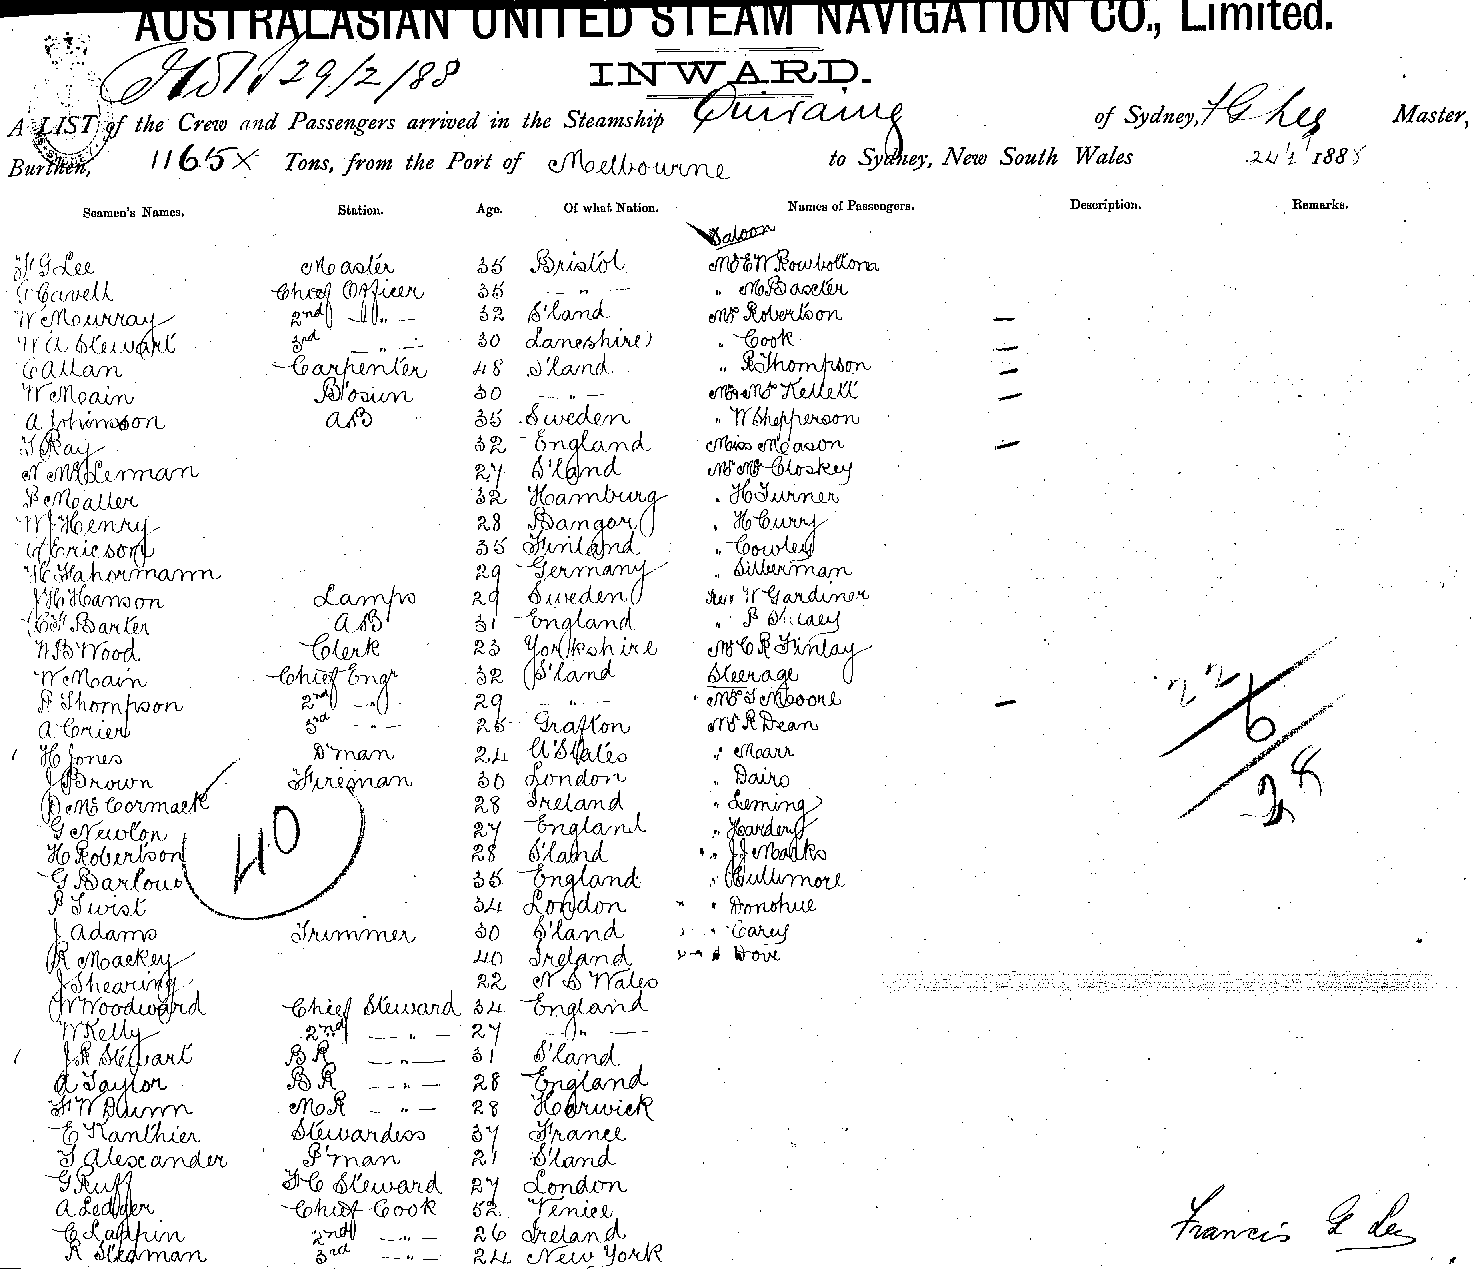 AUSTRALASIAN UNITED STEAM NAVIGATION CO., Limited.
29/2/88 INWARD.
A LIST of the Crew and Passengers arrived in the Steamship Quiraing of Sydney, F G Lee Master,
Burthen, 1165 Tons, from the Port of Melbourne to Sydney, New South Wales 1888
Seamen's Names. Station. Age. Of what Nation. Names of Passengers. Description. Remarks.
Saloon
F G Lee Master 35 Bristol Mr E W Rowbottom
Cavell Chief Officer 35 — " — " M Baxter
W Mourray 2nd — " — 32 S'land Mr Robertson —
W A Stewart 3rd — " — 30 Laneshire " Cook —
C Allan Carpenter 48 S'land " R Thompson —
W Main Bosun 30 — " — Mr & Mrs Kellett —
A Johnnson AB 35 Sweden " W Shepperson
T Ray 32 England Miss Mason —
N McLennan 27 S'land Closkey
P Matter 32 Hamburg " H Turner
W J Henry 28 Bangor " H Curry
Ericson 35 Finland " Cowley
H Fahormann 29 Germany " Silberman
J H Hanson Lamps 29 Sweden Rev W Gardiner
C F Barter AB 31 England "
W B Wood Clerk 23 Yorkshire Mr C R Finlay
W Main Chief Engr 32 S'land Steerage
R Thompson 2nd — " 29 — " — Moore —
A Crier 3rd — " — 25 Grafton Mr R Dean
H Jones D'man 24 U States " Marr
J Brown Fireman 30 London "
D McCormack 28 Ireland " Leming
G Newton 27 England " Hardery
H Robertson 28 S'land " J J Marks
G Barlow 35 England " Bullimore
P Twist 34 London " " Donohue
J Adams Trimmer 30 S'land " Carey
R Mackey 40 Ireland " Dove
J Shearing 22 N S Wales
W Woodward Chief Steward 34 England
W Kelly 2nd — " — 27 — " —
J R Stewart BR — " — 31 S'land
A Taylor BR — " — 28 England
F W Dunn MR — " — 28 Harwick
E Kanthier Stewardess 37 France
T Alexander P'man 21 S'land
G Ruff F C Steward 27 London
A Ledger Chief Cook 52 Venice
C Lappin 2nd — " — 26 Ireland
R Stedman 3rd — " — 24 New York
40
22
6
28
Francis G Lee